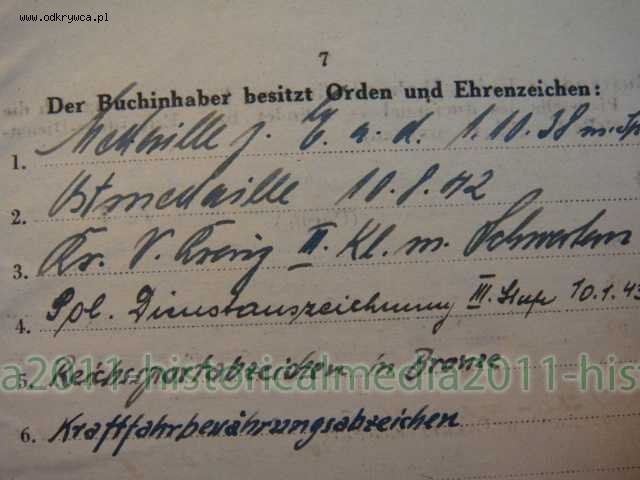 www.odkrywca.pl
7
Der Buchinhaber besitzt Orden und Ehrenzeichen:
1. Medaille z. E. a. d. 1.10.38 m. Sp
2. Ostmedaille 10.8.42
3. Kr. V. Kreuz II. Kl. m. Schwertern
4. Pol. Dienstauszeichnung III. Stufe 10.1.43
a2011-historicalmedia2011-hist
5. Reichssportabzeichen in Bronze
6. Kraftfahrbewährungsabzeichen